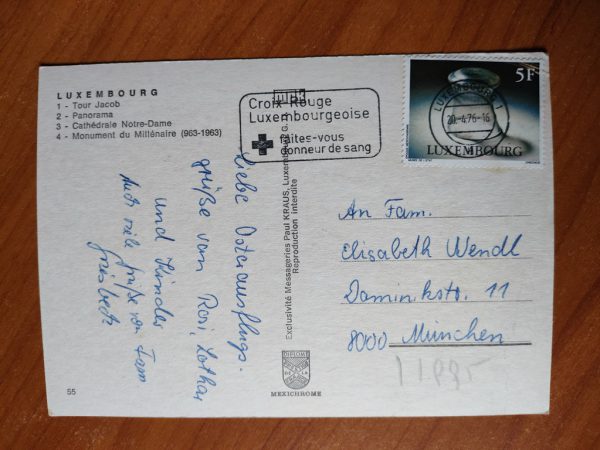 LUXEMBOURG
1 - Tour Jacob
2 - Panorama
3 - Cathédrale Notre-Dame
4 - Monument du Millénaire (963-1963)
Croix-Rouge
Luxembourgeoise
faites-vous
donneur de sang
LUXEMBOURG 1
20.-4.76-16
5F
LUXEMBOURG
Liebe Osterausflugs-
grüße von Rosi, Lothar
und Kinder
Auch viele Grüße von Fam
Exclusivité Messageries Paul KRAUS, Luxembourg G.
Reproduction interdite
An Fam.
Elisabeth Wendl
Dominikstr. 11
8000 München
DIPLOM
MEXICHROME
55